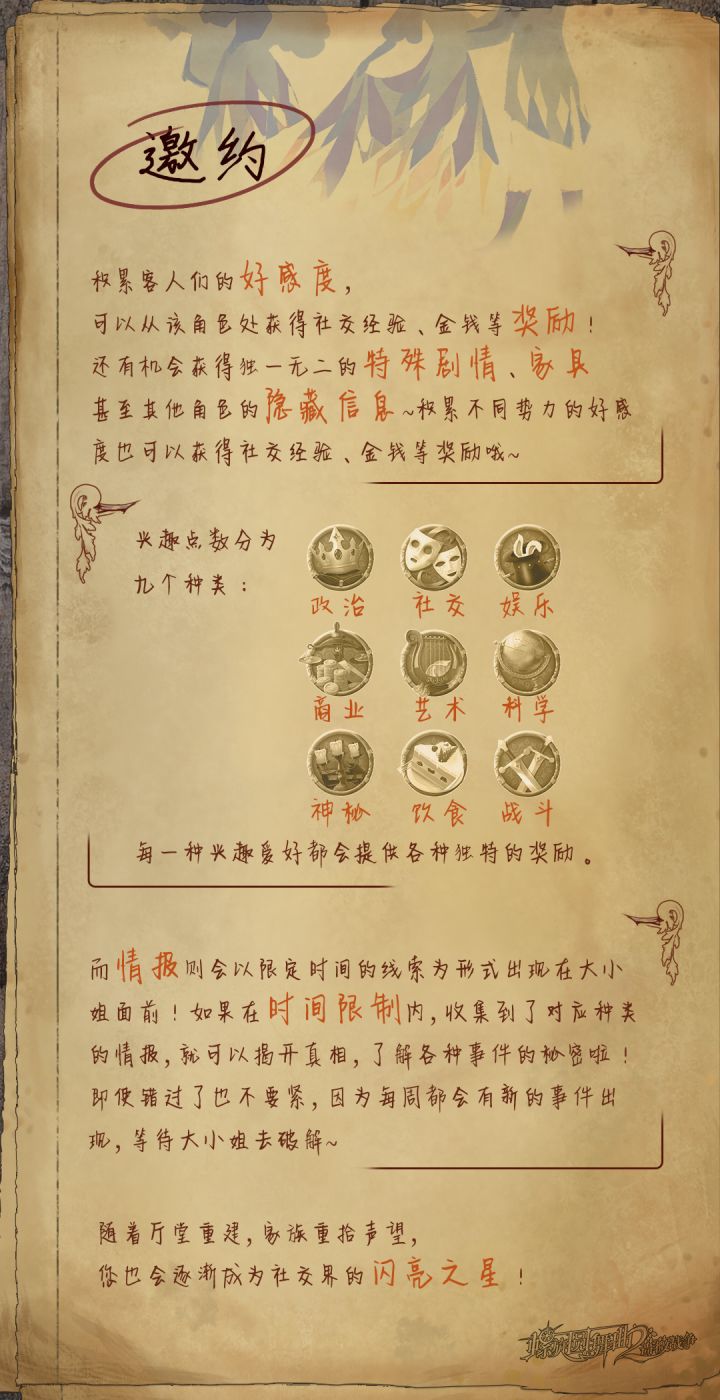 邀约
积累客人们的好感度，
可以从该角色处获得社交经验、金钱等奖励！
还有机会获得独一无二的特殊剧情、家具
甚至其他角色的隐藏信息~积累不同势力的好感
度也可以获得社交经验、金钱等奖励哦~
兴趣点数分为
九个种类：
政治 社交 娱乐
商业 艺术 科学
神秘 饮食 战斗
每一种兴趣爱好都会提供各种独特的奖励。
而情报则会以限定时间的线索为形式出现在大小
姐面前！如果在时间限制内，收集到了对应种类
的情报，就可以揭开真相，了解各种事件的秘密啦！
即使错过了也不要紧，因为每周都会有新的事件出
现，等待大小姐去破解~
随着厅堂重建，家族重拾声望，
您也会逐渐成为社交界的闪亮之星！
螺旋圆舞曲2